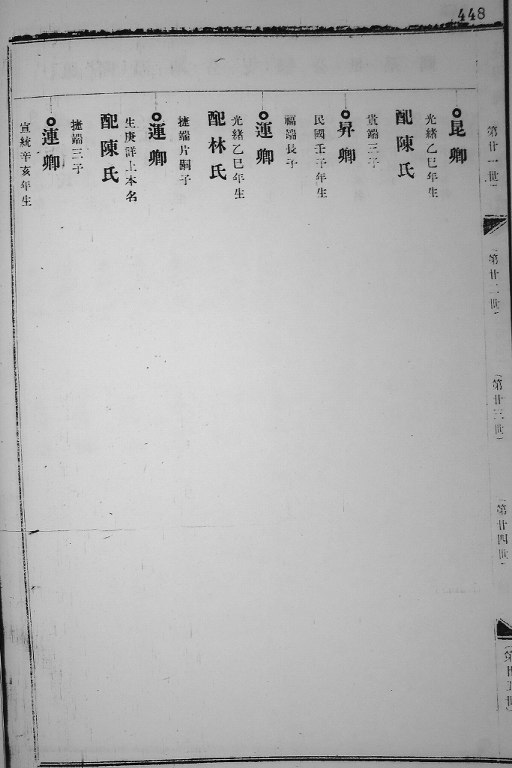 448
第廿一世
第廿二世
(第廿三世)
第廿四世
昆卿
光緒乙巳年生
配陳氏
端三子
昇卿
民國壬子年生
福端長子
運卿
光緒乙巳年生
配林氏
捷端片嗣子
運卿
生庚詳上本名
配陳氏
捷端三子
運卿
宣統辛亥年生